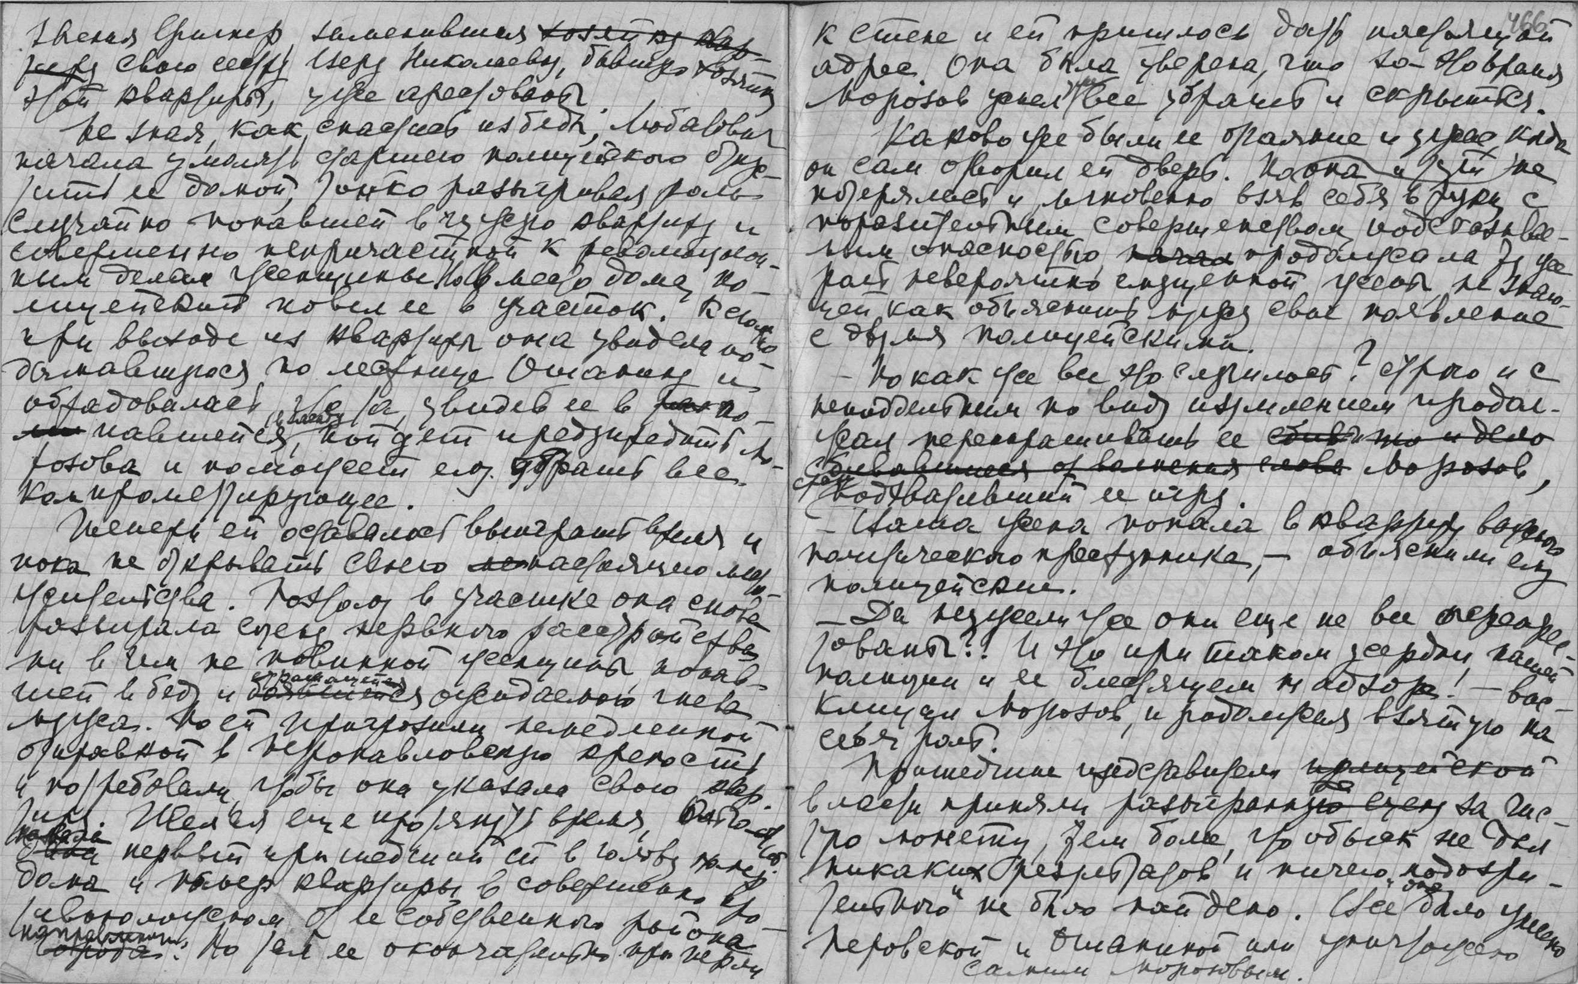 заменившая хозяйку квар-
тиры свою сестру Веру Николаевну, бывшую хозяйку
этой квартиры, уже арестованы.
Не зная, как спастись из беды, Любатович
начала умолять старшего полицейского отпус-
тить ее домой, тонко разыгрывая роль
случайно попавшей в чужую квартиру и
совершенно непричастной к революцион-
ным делам женщины. Но вместо дома по-
лицейский повел ее в участок. Только
при выходе из квартиры она увидела по-
дымавшуюся по лестнице Ошанину и
обрадовалась, что та, увидев ее в по-
павшейся, пойдет предупредить Мо-
розова и поможет ему убрать все
компрометирующее.
Теперь ей оставалось выиграть время и
пока не открывать своего настоящего место-
жительства. Поэтому в участке она снова
разыграла сцену нервного расстройства
ни в чем не повинной женщины, попав-
шей в беду и страшащейся ожидаемого гнева
мужа. Но ей пригрозили немедленной
отправкой в Петропавловскую крепость
и потребовали, чтобы она указала свою квар-
тиру. Желая еще протянуть время,
первый пришедший ей в голову номер
дома и номер квартиры в совершенно про-
тивоположном от ее собственного района
направлении. Но тем ее окончательно приперли
466
к стене и ей пришлось дать настоящий
адрес. Она была уверена, что за это время
Морозов успел уже все убрать и скрыться.
Каково же были ее отчаяние и ужас, когда
он сам отворил ей дверь. Но она и тут не
потерялась и, мгновенно взяв себя в руки, с
поразительным совершенством, подсказывае-
мым опасностью, начала продолжала ту же
роль невероятно смущенной жены, не знаю-
щей как объяснить мужу свое появление
с двумя полицейскими.
— Но как же все это случилось? строго и с
неподдельным по виду изумлением продол-
жал переспрашивать ее сбивчиво и дело
сбивавшиеся от волнения слова Морозов,
сразу подхвативший ее игру.
— Ваша жена попала в квартиру важного
политического преступника, — объяснили ему
полицейские.
— Да неужели же они еще не все переарес-
тованы?! И это при таком усердии нашей
полиции и ее блестящем надзоре! — вос-
кликнул Морозов, продолжая взятую на
себя роль.
Пришедшие представители полицейской
власти приняли разыгранную сцену за чис-
тую монету, тем более, что обыск не дал
никаких результатов и ничего „подозри-
тельного" не было найдено. Все было унесено
Перовской и Ошаниной или уничтожено
самим Морозовым.